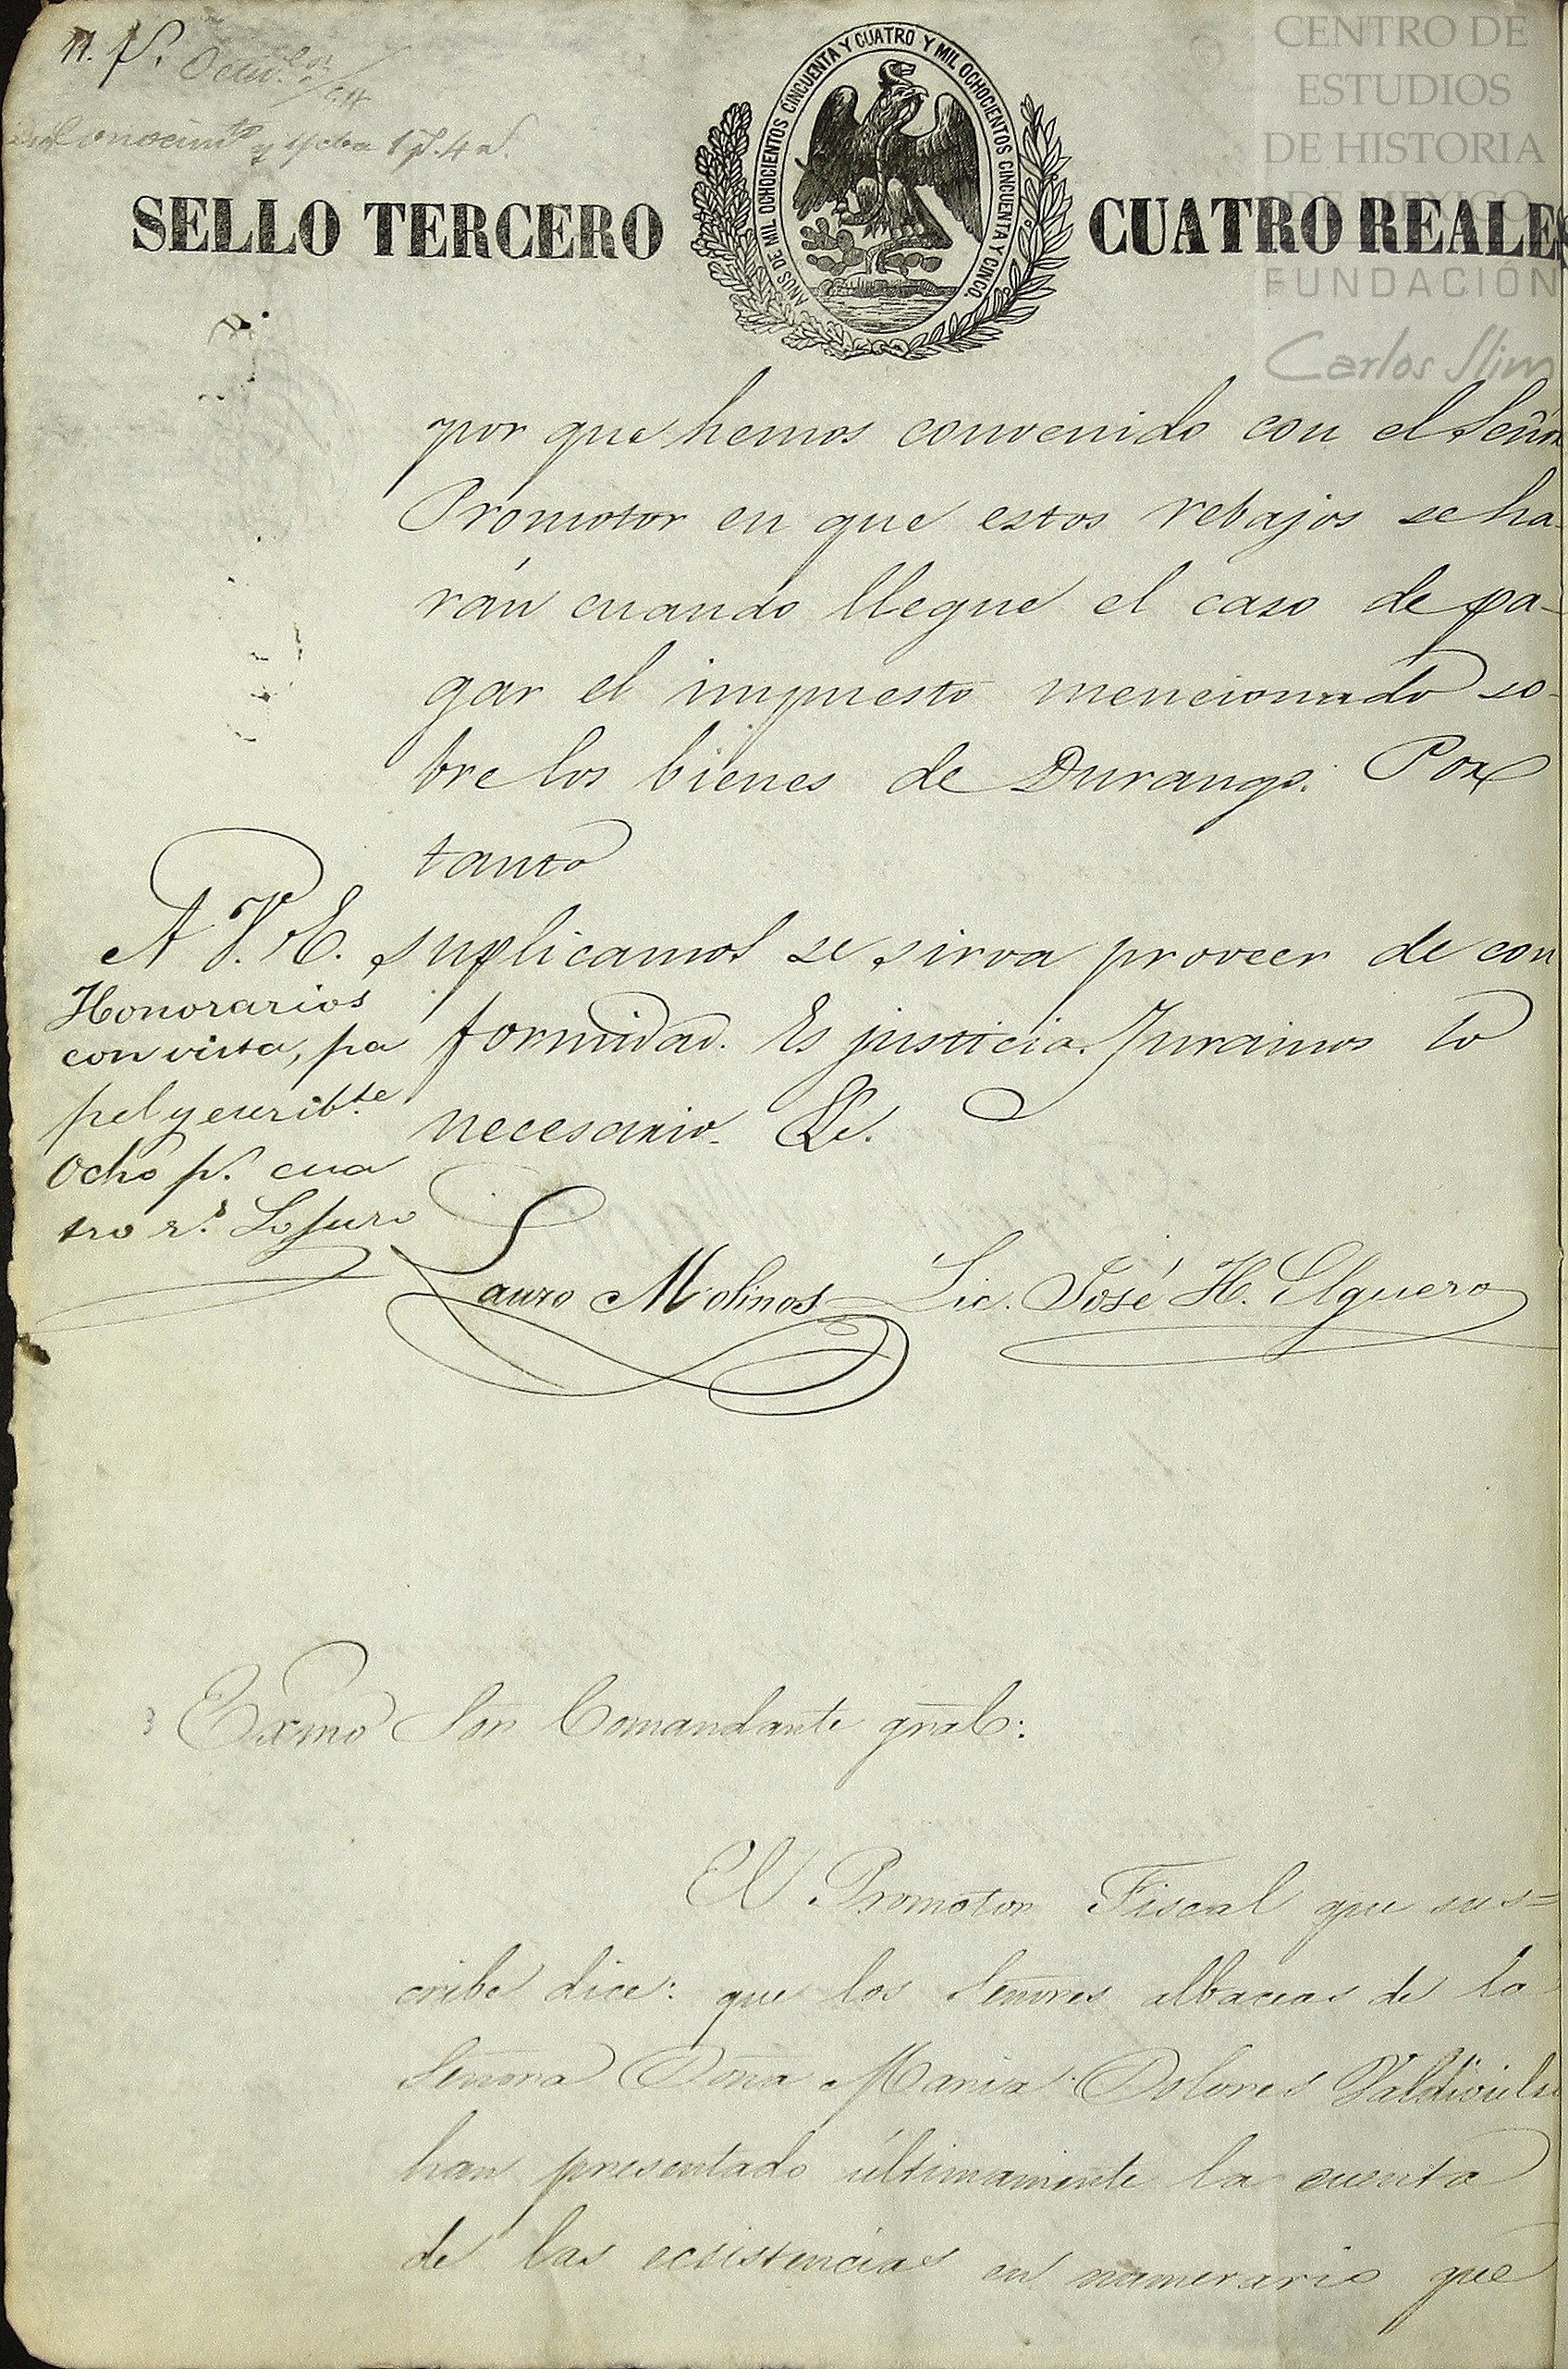 CENTRO DE
ESTUDIOS
DE HISTORIA
DE MEXICO
FUNDACIÓN
Carlos Slim
y ycta 1 p. 4 r.
SELLO TERCERO
AÑOS DE MIL OCHOCIENTOS CINCUENTA Y CUATRO Y MIL OCHOCIENTOS CINCUENTA Y CINCO.
CUATRO REALES
por que hemos convenido con el Señor
Promotor en que estos rebajos se ha-
rán cuando llegue el caso de pa-
gar el impuesto mencionado so-
bre los bienes de Durango. Por
tanto
A V. E. suplicamos se sirva proveer de con
formidad. Es justicia. Juramos lo
necesario. &c.
Honorarios
con vista, pa
pel y escribte
Ocho p.s cua
tro r.s Lo juro
Lauro Molinos Lic. José H. Elguero
Exmo Sor Comandante gral:
El Promotor Fiscal que sus=
cribe dice: que los Señores albaceas de la
Señora Doña Maria Dolores Valdivielso
han presentado últimamente la cuenta
de las ecsistencias en numerario que